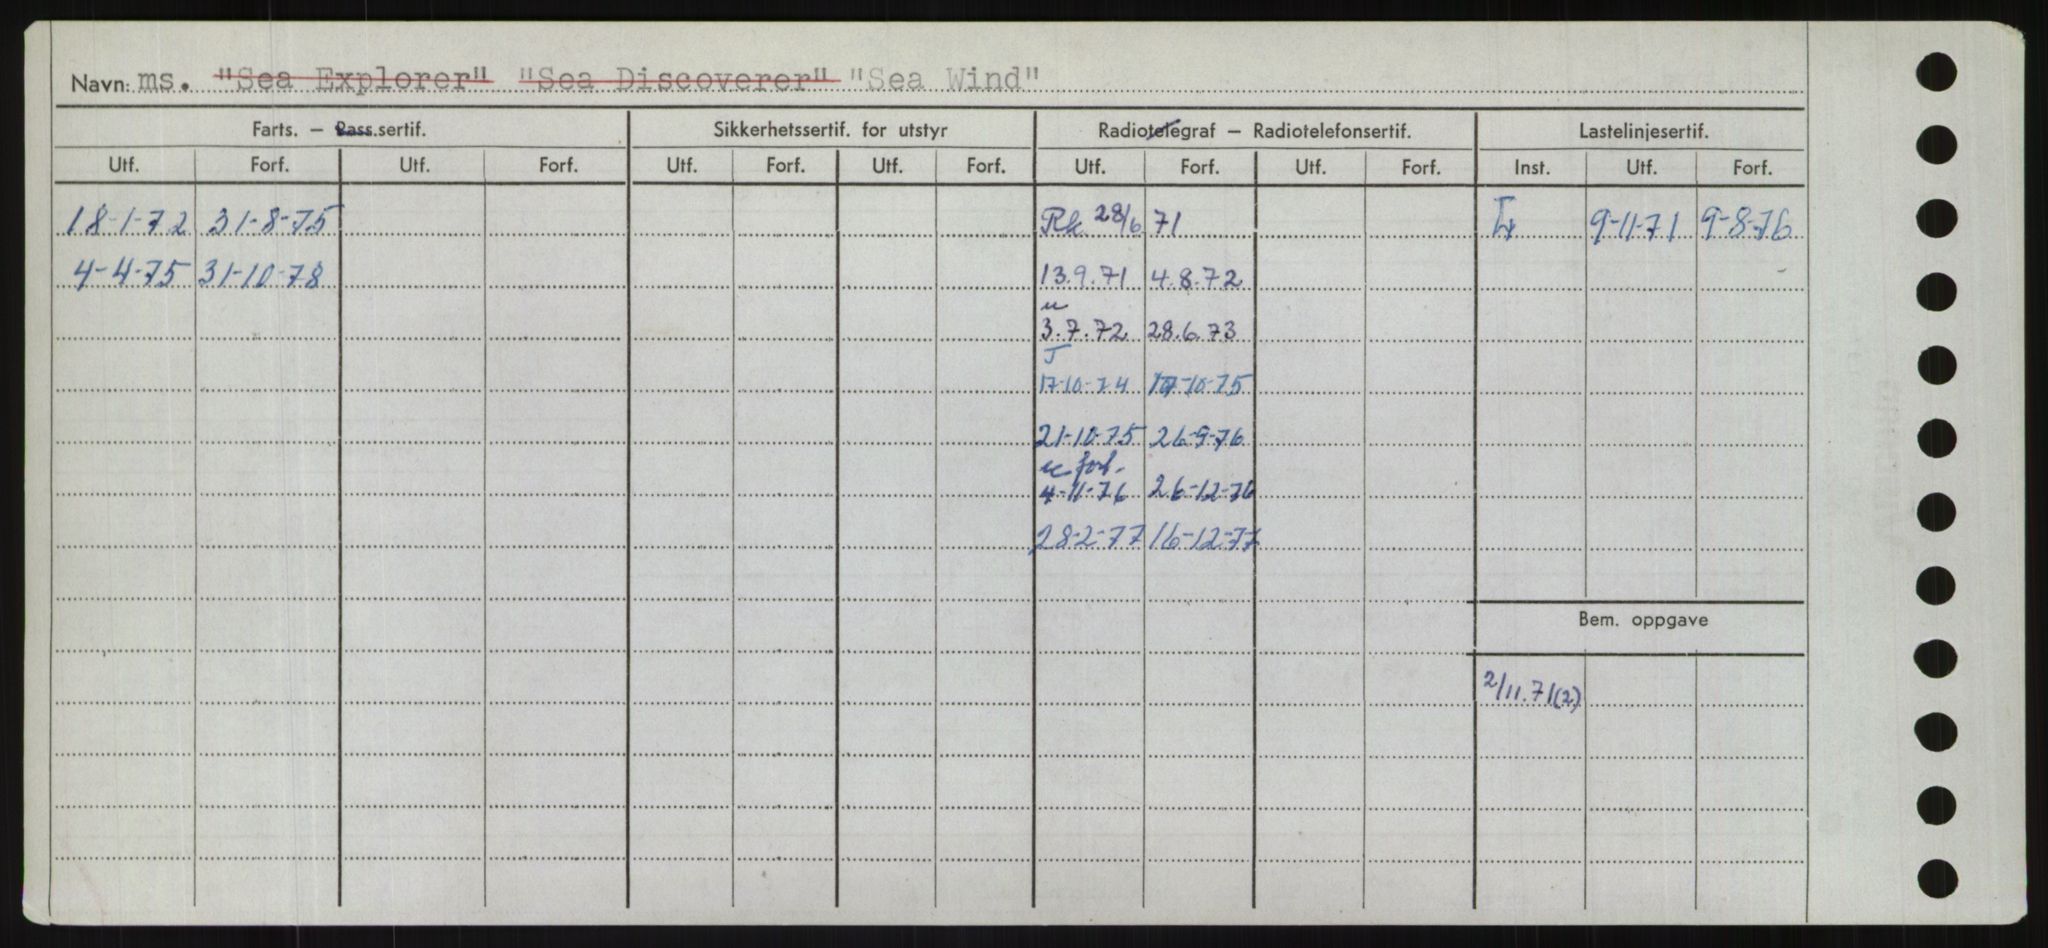 Navn: ms. "Sea Explorer" "Sea Discoverer" "Sea Wind"
Farts. — Pass.sertif. Sikkerhetssertif. for utstyr Radiotelegraf — Radiotelefonsertif. Lastelinjesertif.
Utf. Forf. Utf. Forf. Utf. Forf. Utf. Forf. Utf. Forf. Utf. Forf. Inst. Utf. Forf.
18-1-72 31-8-75 Rk 28/6 71 9-11-71 9-8-76
4-4-75 31-10-78 13.9.71 4.8.72
3.7.72 28.6.73
17-10-74 17-10-75
21-10-75 26-9-76
forl.
4-11-76 26-12-76
28-2-77 16-12-77
Bem. oppgave
2/11.71(2)